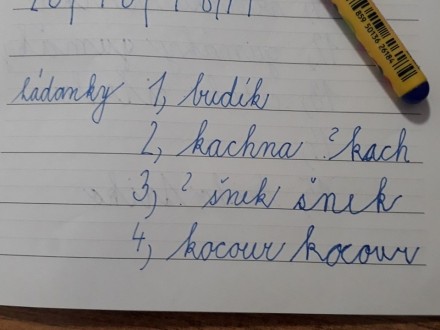 859 50136 26184
hádanky 1, budík
2, kachna ? kach
3, ? šnek šnek
4, kocour kocour